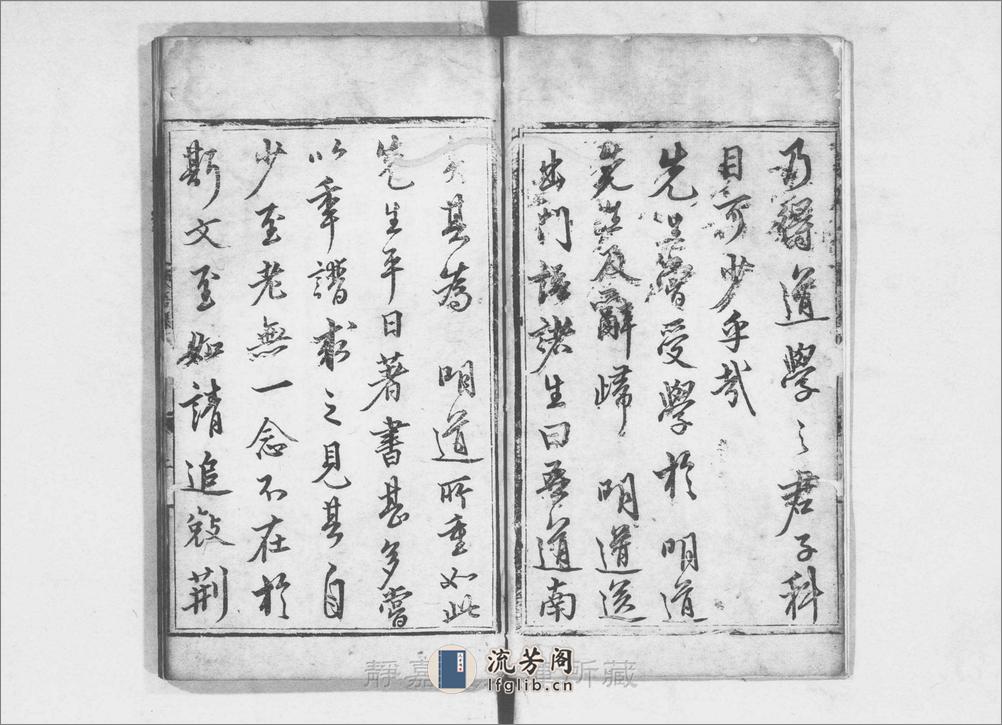 乃得道學之君子科
目可少乎哉
先生嘗受學於明道
先生及辭歸明道送
出門語諸生曰吾道南
矣其為明道所重如此
先生平日著書甚多嘗
以年譜求之見其自
少至老無一念不在於
斯文至如請追毀荆
流芳阁
lfglib.cn
靜嘉 所藏